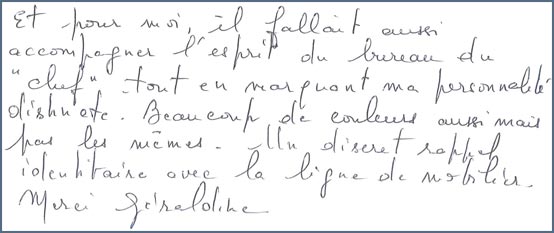 Et pour moi, il fallait aussi
accompagner l'esprit du bureau du
"chef" tout en marquant ma personnalité
distincte. Beaucoup de couleurs aussi mais
pas les mêmes. Un discret rappel
identitaire avec la ligne de mobilier.
Merci Géraldine